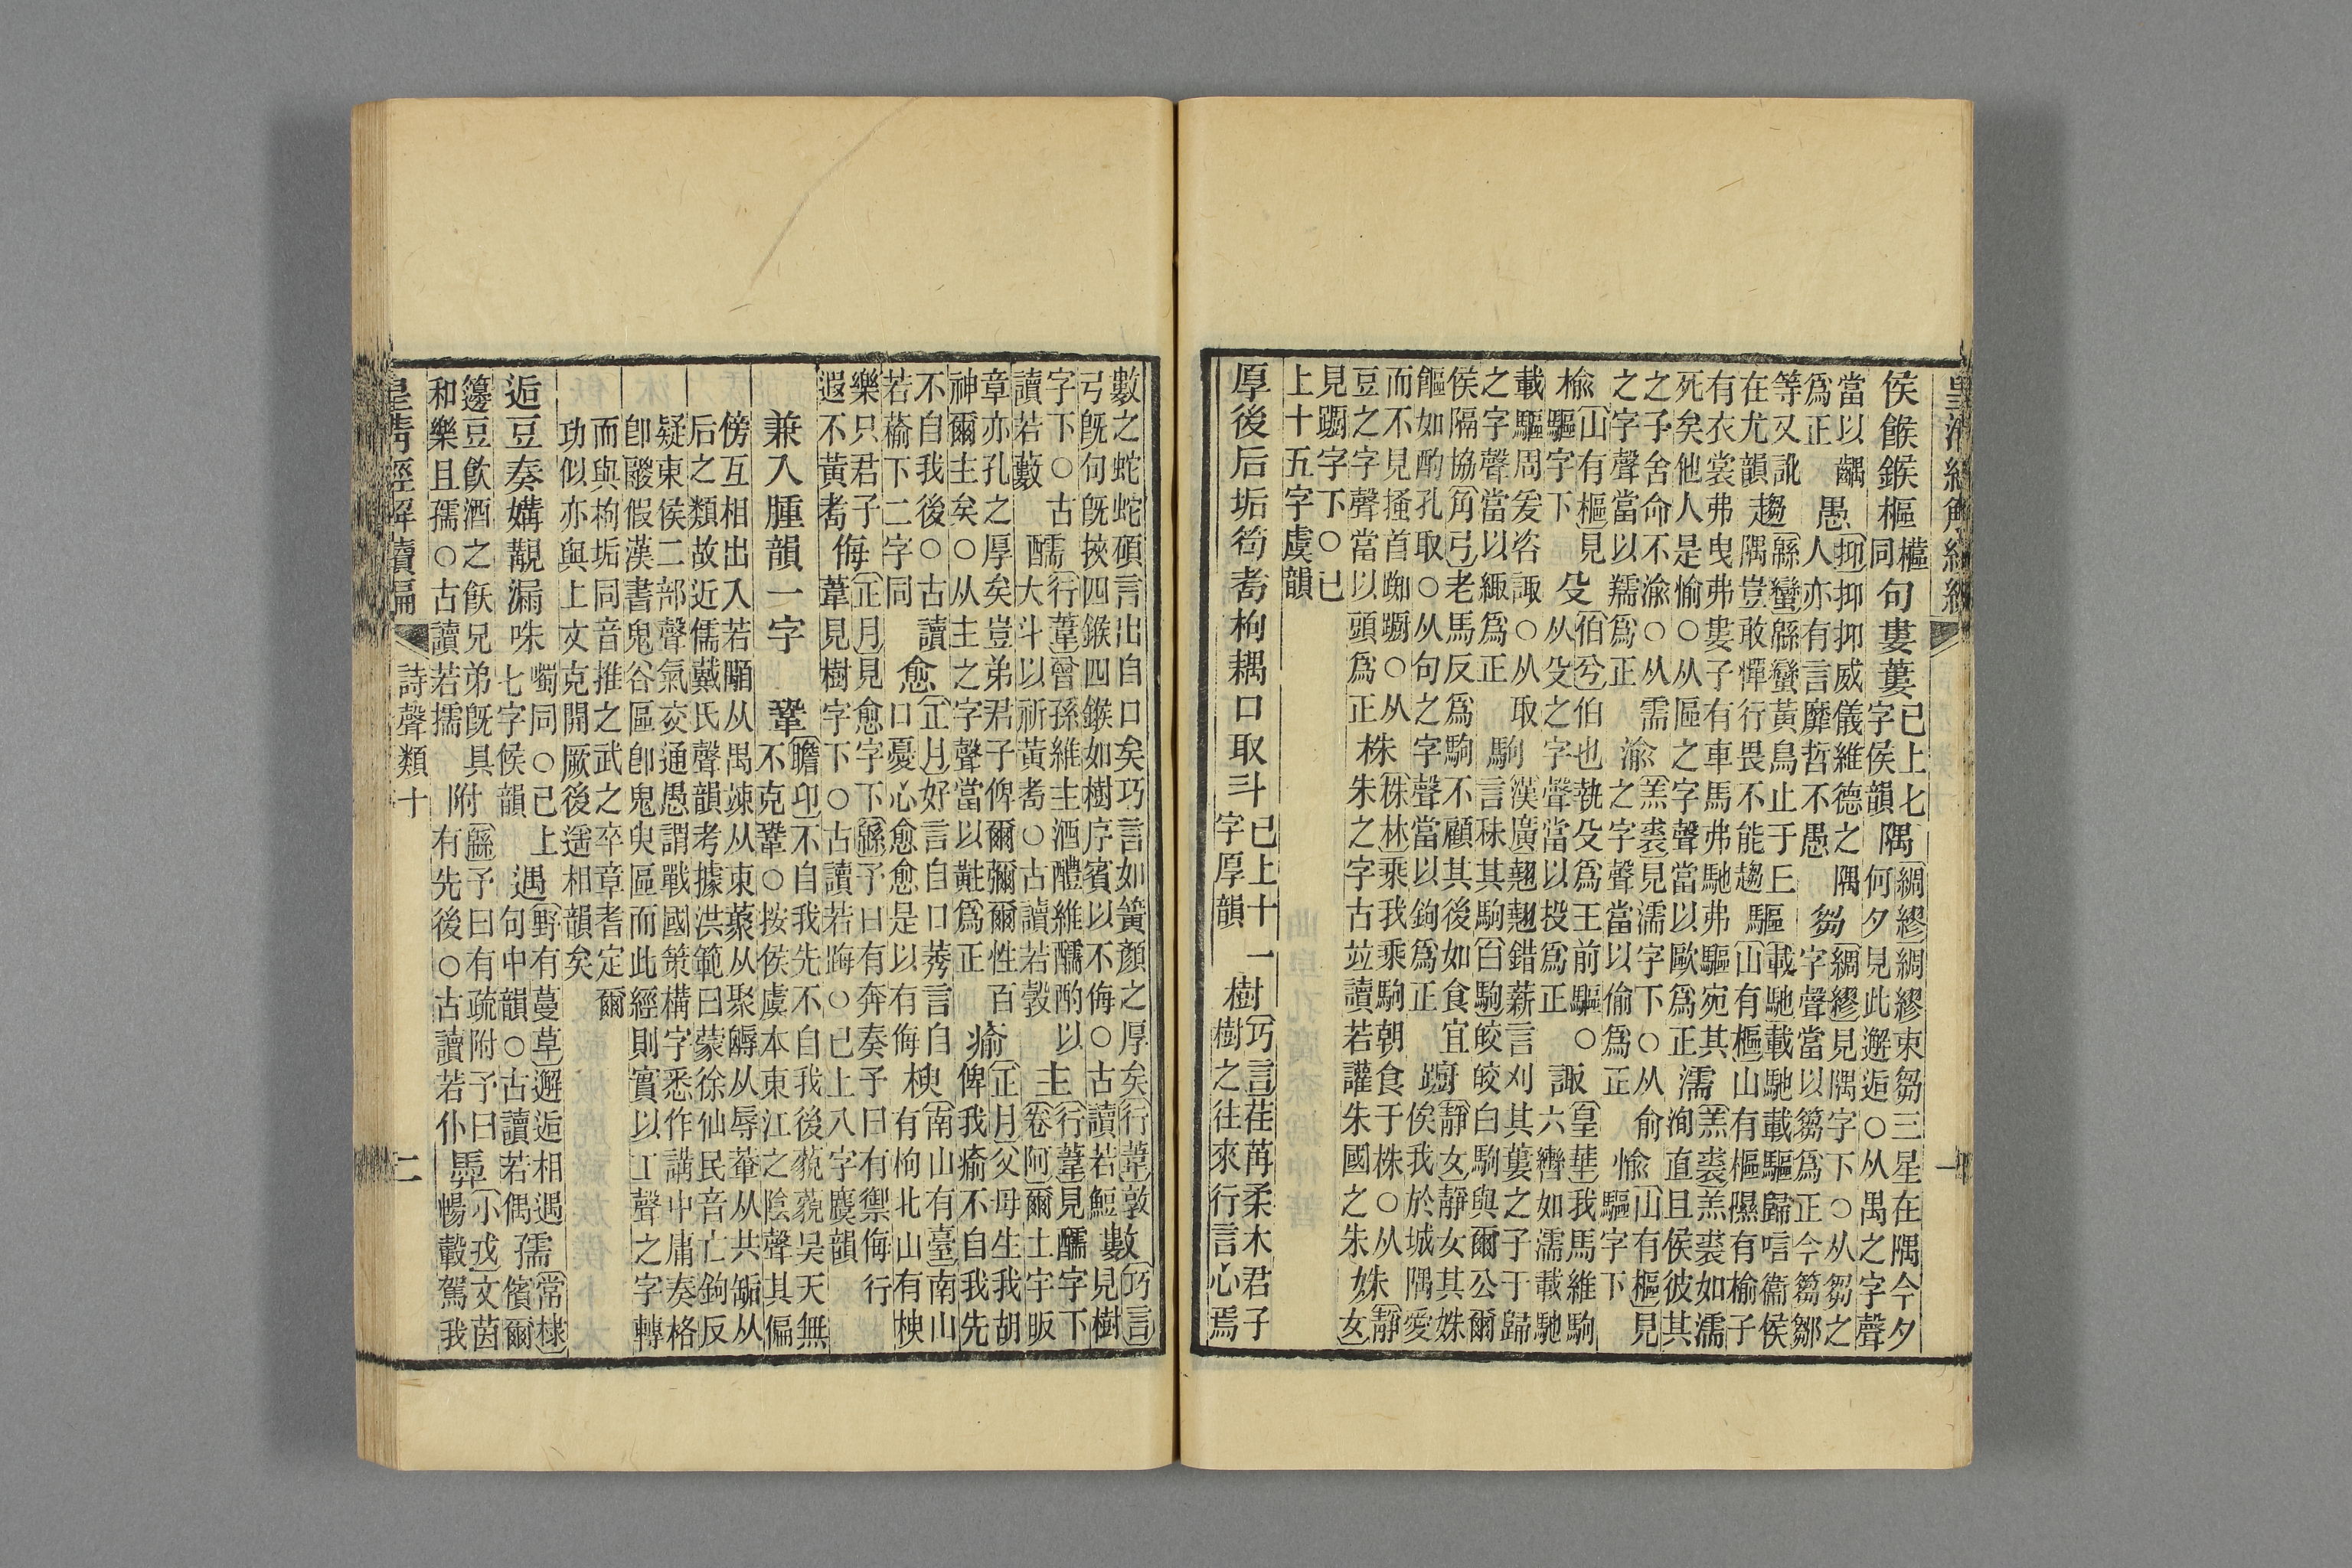 皇清經解續編
侯餱鍭樞
同
句婁蔞
已上七
字侯韻
隅
綢繆綢繆束芻三星在隅今夕
何夕見此邂逅○从禺之字聲
當以齵
爲正
愚
抑抑抑威儀維德之隅
人亦有言靡哲不愚
芻
綢繆見隅字下○从芻之
字聲當以芻爲正今芻鄒
等又訛
在尤韻
趨
緜蠻緜蠻黃鳥止于丘
隅豈敢憚行畏不能趨
驅
載馳載馳載驅歸唁衞侯
山有樞山有樞隰有榆子
有衣裳弗曳弗婁子有車馬弗馳弗驅宛其
死矣他人是愉○从區之字聲當以歐爲正
濡
羔裘羔裘如濡
洵直且侯彼其
之子舍命不渝○从需
之字聲當以爲正
渝
羔裘見濡字下○从俞
之字聲當以偷爲正
愉
山有樞見
驅字下
榆
山有樞見
驅字下
殳
伯兮伯也執殳爲王前驅○
从殳之字聲當以投爲正
諏
皇華我馬維駒
六轡如濡載馳
載驅周爰咨諏○从取
之字聲當以緅爲正
駒
漢廣翹翹錯薪言刈其蔞之子于歸
言秣其駒百駒皎皎白駒與爾公爾
侯隔協角弓老馬反爲駒不顧其後如食宜
饇如酌孔取○从句之字聲當以鉤爲正
躕
靜女靜女其姝
俟我於城隅愛
而不見搔首踟躕○从
豆之字聲當以頭爲正
株
株林乘我乘駒朝食于株○从
朱之字古竝讀若讙朱國之朱
姝
靜
女
見躕字下○已
上十五字虞韻
厚後后垢笱耇枸耦口取斗
已上十一
字厚韻
樹
巧言荏苒柔木君子
樹之往來行言心焉
數之蛇蛇碩言出自口矣巧言如簧顏之厚矣行葦敦
弓既句既挾四鍭四鍭如樹序賓以不侮○古讀若鯫
數
巧言
見樹
字下○古
讀若藪
醹
行葦曾孫維主酒醴維醹酌以
大斗以祈黃耇○古讀若㝅
主
行葦見醹字下
卷阿爾土宇昄
章亦孔之厚矣豈弟君子俾爾彌爾性百
神爾主矣○从主之字聲當以黈爲正
瘉
正月父母生我胡
俾我瘉不自我先
不自我後○古讀
若楡下二字同
愈
正月好言自口莠言自
口憂心愈愈是以有侮
楰
南山有臺南山
有枸北山有楰
樂只君子
遐不黃耇
侮
正月見愈字下緜予曰有奔奏予曰有禦侮行
葦見樹字下○古讀若晦○已上八字麌韻
兼入腫韻一字
鞏
瞻卬不自我先不自我後藐藐昊天無
不克鞏○按侯虞本東江之陰聲其偏
傍互相出入若顒从禺竦从束从聚从辱从共缿从
后之類故近儒戴氏聲韻考據洪範曰蒙徐仙民音亡鉤反
疑東侯二部聲氣交通愚謂戰國策構字悉作講中庸奏格
卽鬷假漢書鬼谷區卽鬼臾區而此經則實以工聲之字轉
而與枸垢同音推之武之卒章耆定爾
功似亦與上文克開厥後遥相韻矣
逅豆奏媾覯漏咮
同○已上
七字侯韻
遇
野有蔓草邂逅相遇
句中韻○古讀若偶
孺
常棣
儐爾
籩豆飲酒之飫兄弟既具
和樂且孺○古讀若擩
附
緜予曰有疏附予曰
有先後○古讀若仆
馵
小戎文茵
暢轂駕我
皇清經解續編 詩聲類十 二